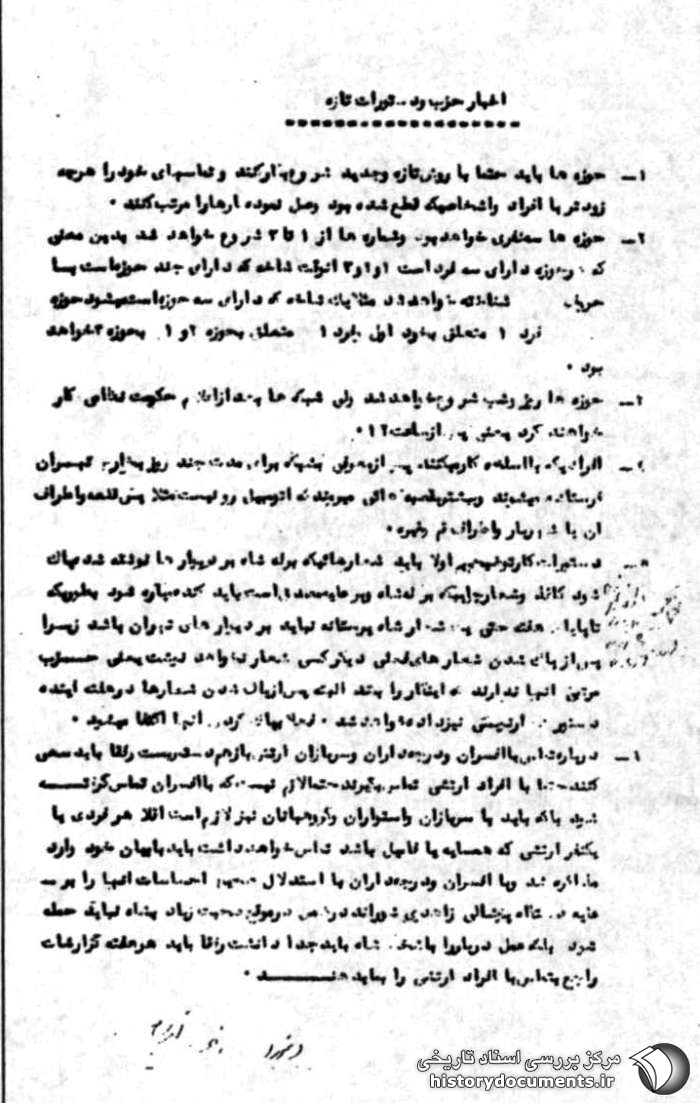 اخبار حزب و دستورات تازه
۱ــ حوزه ها باید حتما با روش تازه وجدید شروع بکار کند و تماسهای خود را هرچه
زودتر با افراد واشخاصیکه قطع شده بود وصل نموده آرها را مرتب کنند .
۲ــ حوزه ها سه نفری خواهد بود وشماره ها از ۱ تا ۳ شروع خواهد شد بدین معنی
که حوزه دارای سه فرد است ۱ و۲ و۳ آنوقت شاخه که دارای چند حوزه است بسا
شناخته خواهد شد مثلا یك شاخه که دارای سه حوزه است میشود حوزه
فرد ۱ متعلق بخود اول فرد ۱ متعلق بحوزه ۲ و ۱ بحوزه ۳ خواهد
بود .
۳ــ حوزه ها روز وشب شروع خواهد شد ولی شبکه ها بعد از اعلام حکومت نظامی کار
خواهند کرد یعنی پس از ساعت ۱۲ .
افرادیکه با اسلحه کار میکنند پس از معرفی بشبکه برای مدت چند روز بخارج تهران
فرستاده میشوند وبیشتر بقصبه هائی میروند که اتومبیل رو نیست مثلا پس قلعه واطراف
آن یا شهریار واطراف قم وغیره .
دستورات کار توضیحی اولا باید شعارهائیکه برله شاه بر دیوار ها نوشته شده پاك
شود کاغذ وشعار چاپیکه برله شاه وبر علیه مصدق است باید کنده وپاره شود بطوریکه
تا پایان هفته حتی یك شعار شاه پرستانه نباید بر دیوار های تهران باشد زیرا
پس از پاك شدن شعار های فعلی دیگر کسی شعار نخواهد نوشت یعنی حزب
مرتبی آنها ندارند که اینکار را بکند البته پس از پاك شدن شعارها در هفته آینده
دستور نویسی نیز داده خواهد شد . فعلا بپاك کردن آنها اکتفا میشود .
۶ــ درباره تماس با افسران ودرجه داران وسربازان ارتش بازهم دستوریست رفقا باید سعی
کنند حتما با افراد ارتشی تماس بگیرند حتما لازم نیست که با افسران تماس گرفته
شود بلکه باید با سربازان واستواران وگروهبانان نیز لازم است اقلا هر فردی با
یکنفر ارتشی که همسایه یا فامیل باشد تماس خواهند داشت باید با بیان خود وارد
مذاکره شد وبا افسران ودرجه داران با استدلال صحیح احساسات آنها را بر ــ
علیه دستگاه پوشالی زاهدی شوراند در ضمن در موقع صحبت زیاد بشاه نباید حمله
شود بلکه عمل دربار را باشخص شاه باید جدا دانست رفقا باید هر هفته گزارشات
راجع بتماس با افراد ارتشی را بماید هند .
مرکز بررسی اسناد تاریخی
historydocuments.ir